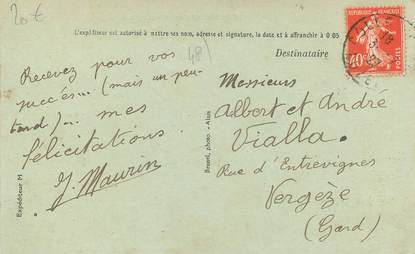 20€
L'expéditeur est autorisé à mettre ses nom, adresse et signature, la date et à affranchir à 0.05
48
Destinataire
RÉPUBLIQUE FRANÇAISE
40
POSTES
Recevez pour vos
succès... (mais un peu
tard)... mes
félicitations.
J. Maurin
Expéditeur M
Brunel, photo - Alais
Messieurs
Albert et André
Vialla.
Rue d'Entrevignes
Vergèze
(Gard)